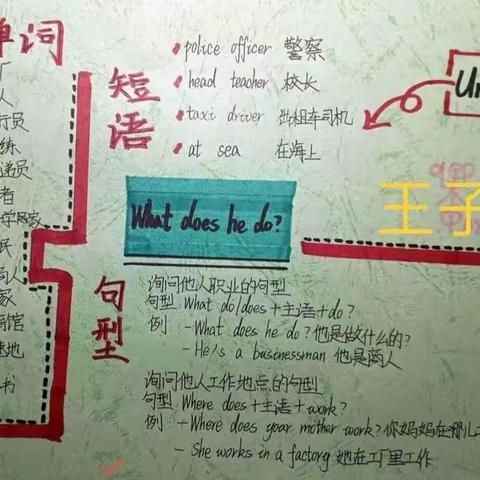 单词
厂
人
行员
练
递员
者
学家
民
商人
家
馆
速地
书
短语
police officer 警察
head teacher 校长
taxi driver 出租车司机
at sea 在海上
Un
王子
What does he do?
句型
询问他人职业的句型
句型: What do/does+主语+do?
例: -What does he do?他是做什么的?
-He's a businessman 他是商人
询问他人工作地点的句型
句型:Where does+主语+work?
例: -Where does your mother work?你妈妈在哪儿工
- She works in a factory 她在工厂里工作